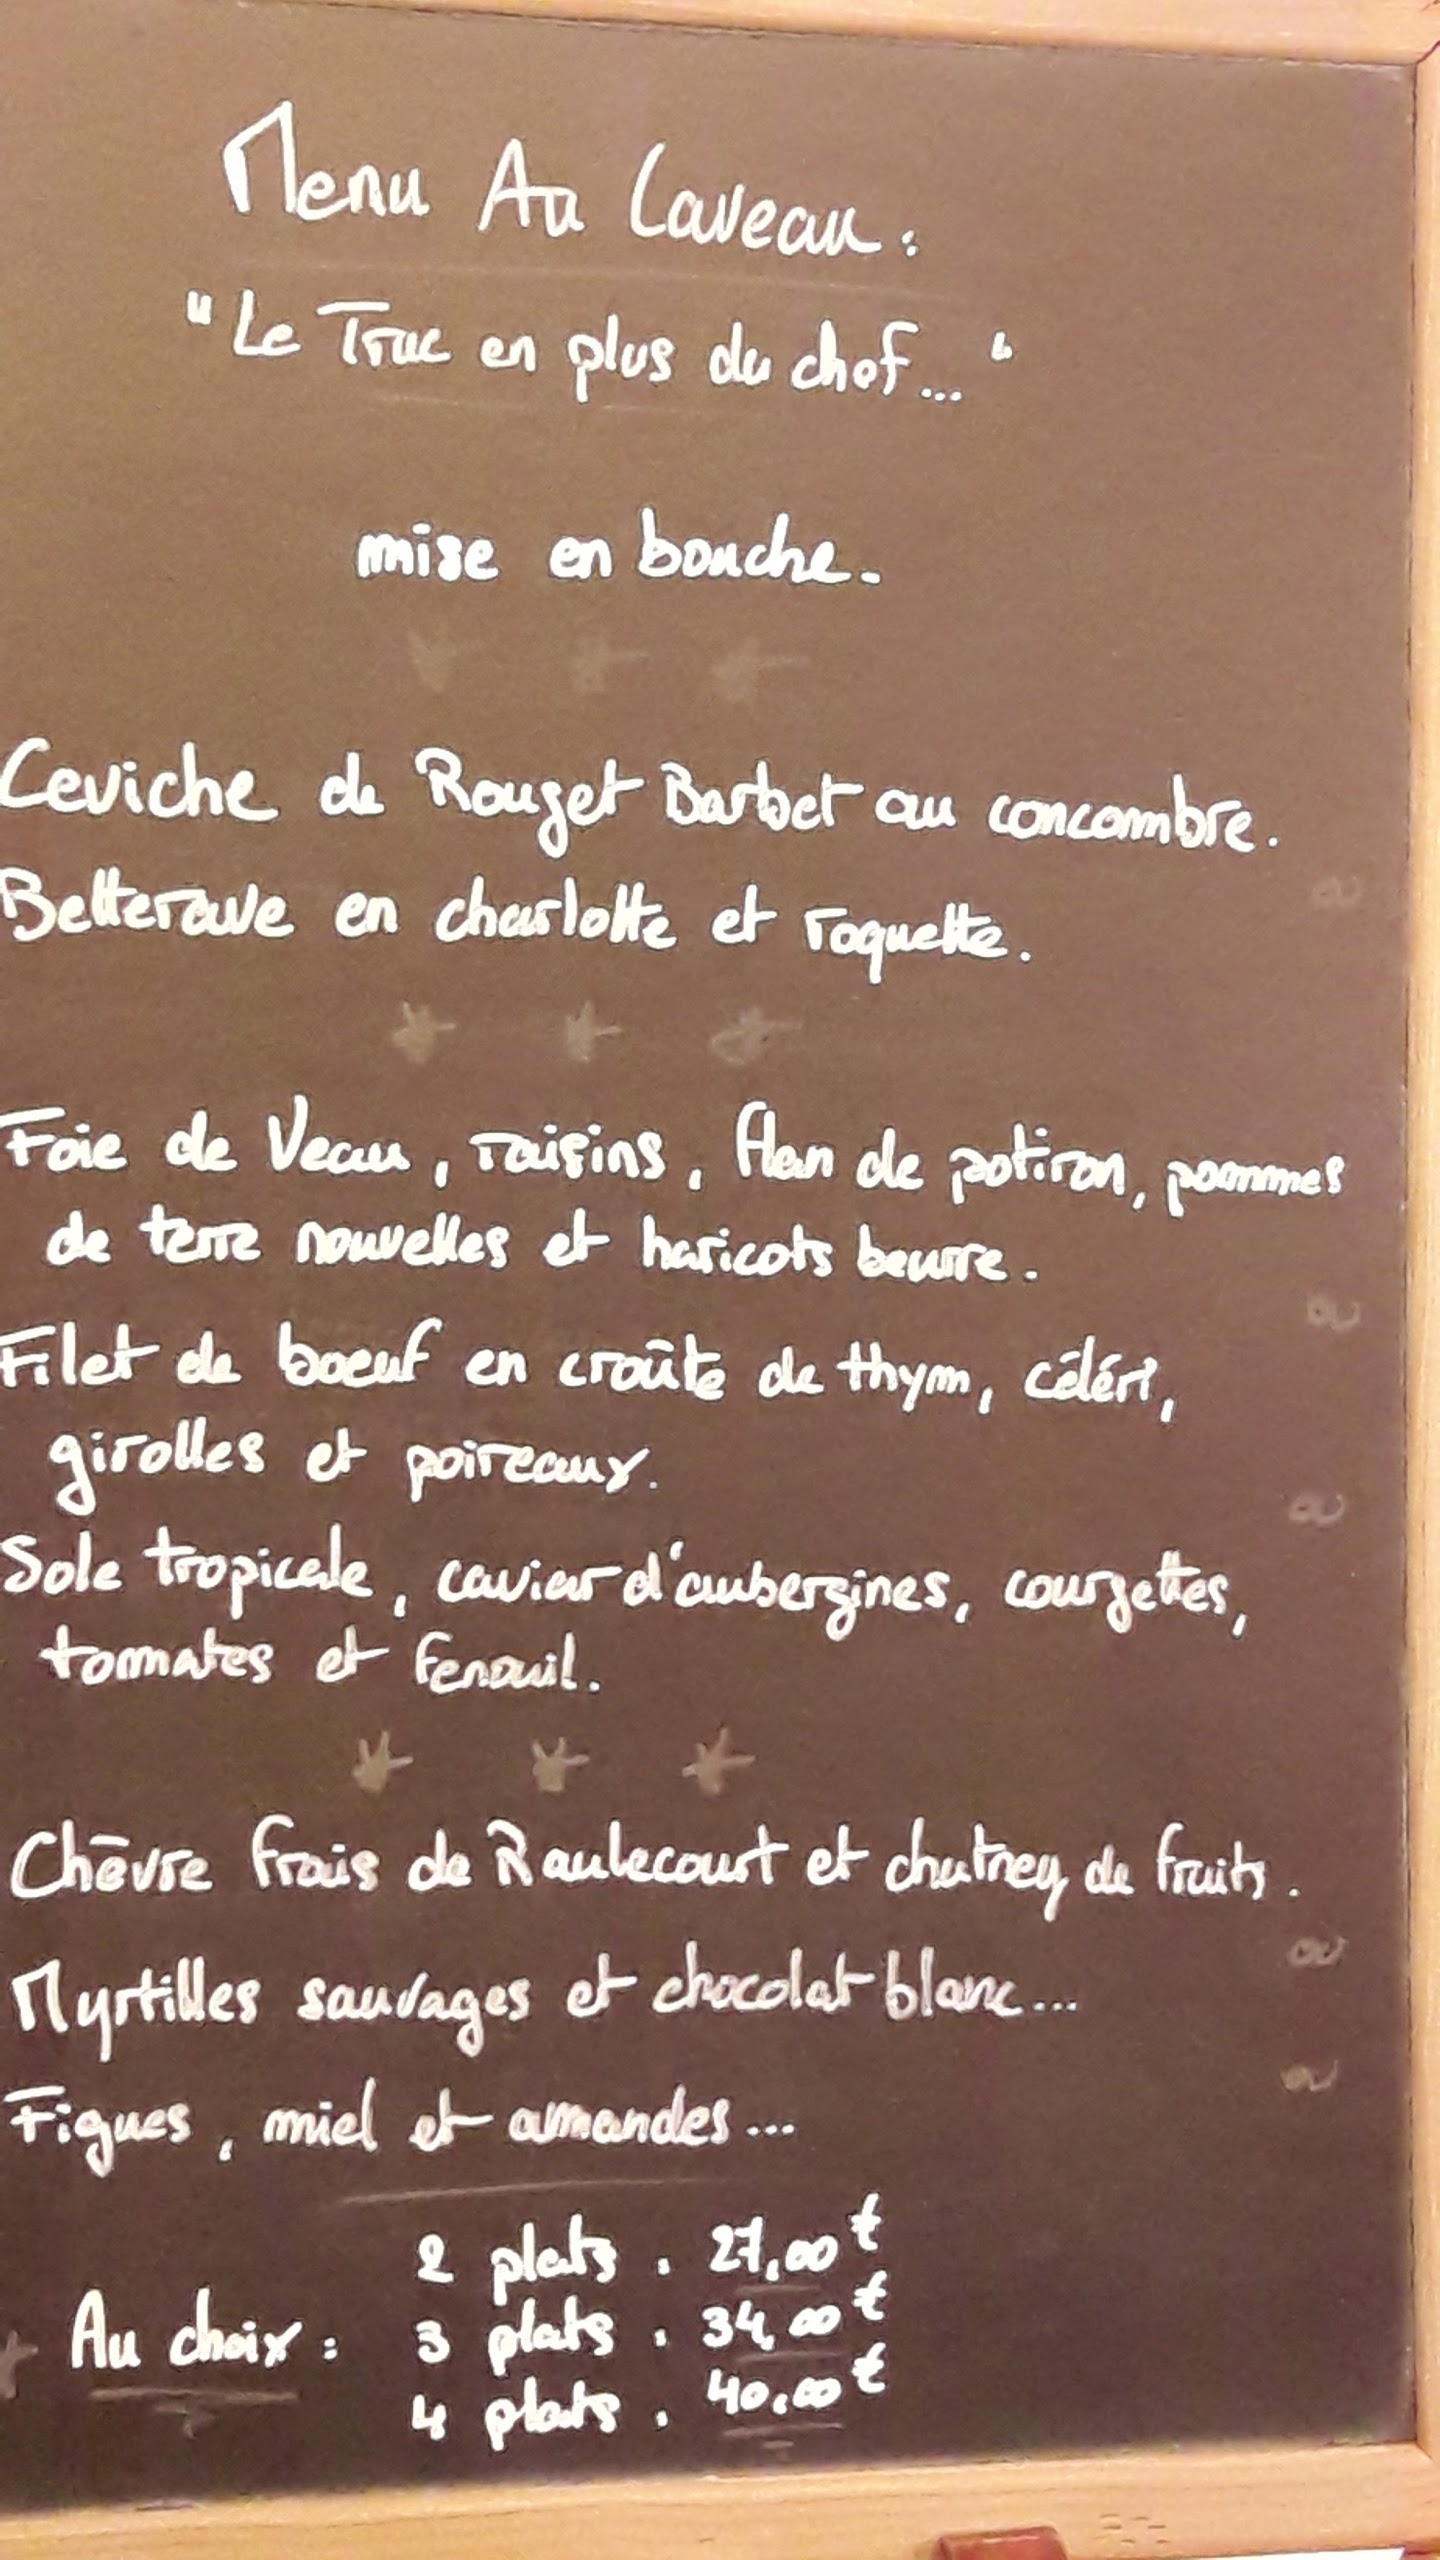 Menu Au Caveau :
"Le Truc en plus du chef... "
mise en bouche.
Ceviche de Rouget Barbet au concombre.
ou
Betterave en charlotte et roquette.
Foie de Veau, raisins, flan de potiron, pommes
de terre nouvelles et haricots beurre.
ou
Filet de boeuf en croûte de thym, céléri,
girolles et poireaux.
ou
Sole tropicale, caviar d'aubergines, courgettes,
tomates et fenouil.
Chèvre frais de Raulecourt et chutney de fruits.
ou
Myrtilles sauvages et chocolat blanc...
ou
Figues, miel et amandes...
2 plats . 27,00 €
Au choix : 3 plats . 34,00 €
4 plats . 40,00 €